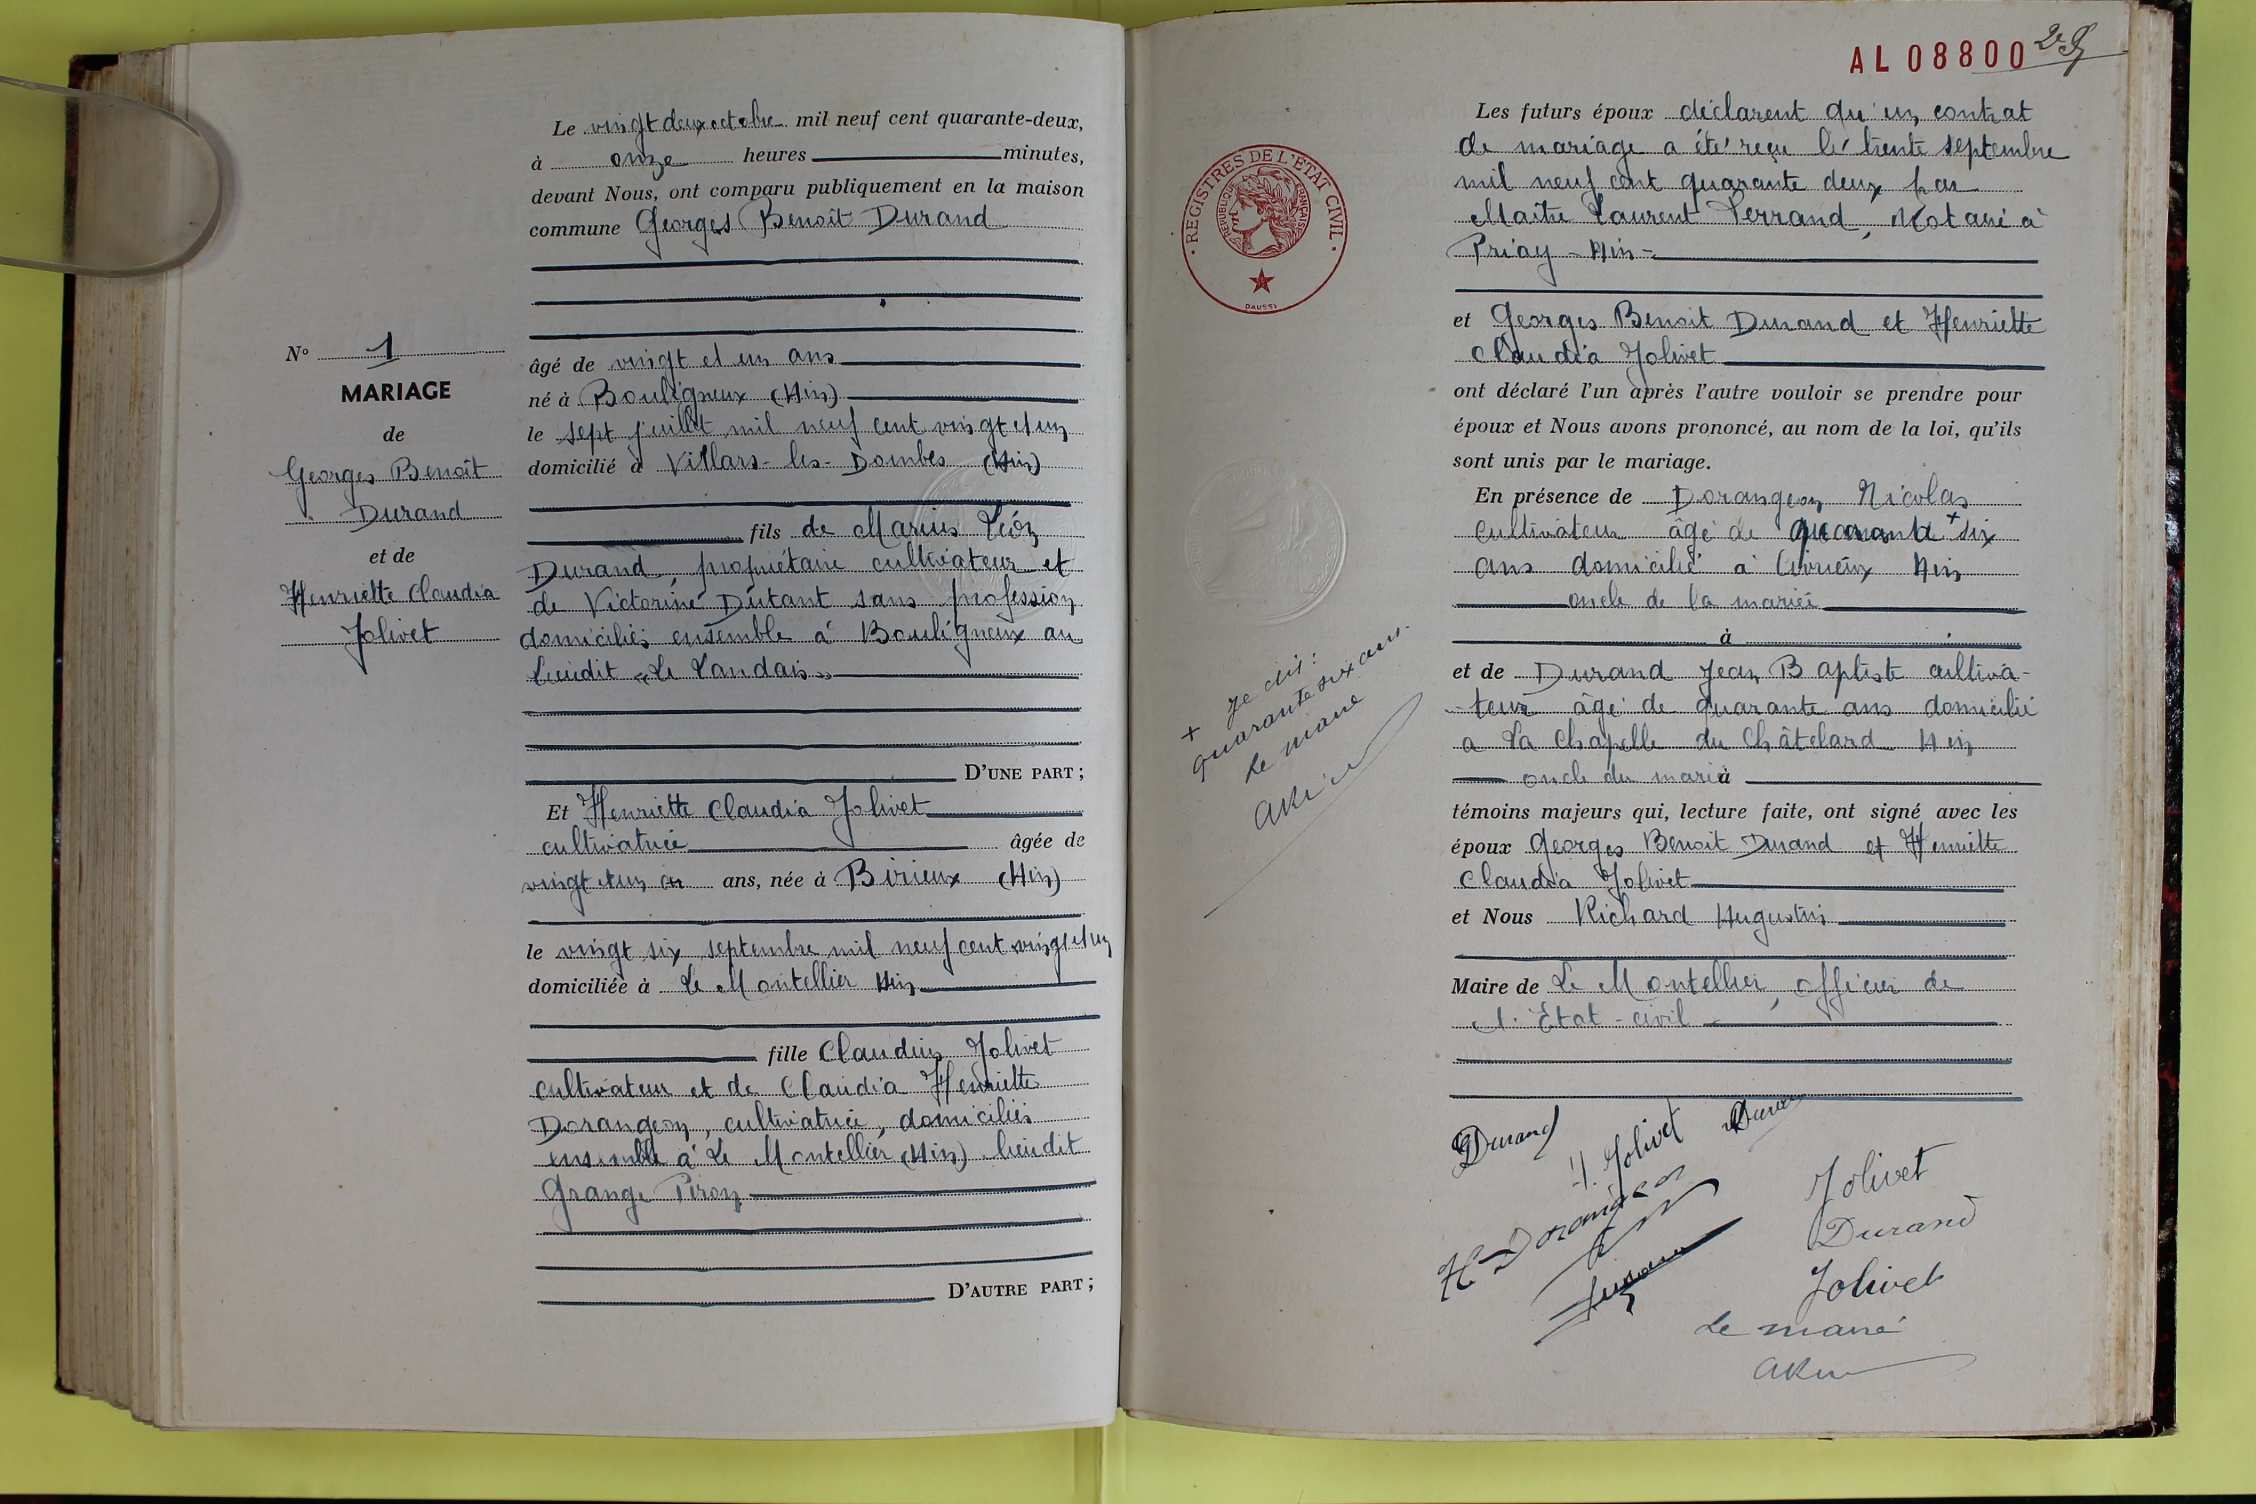 Le vingt deux octobre mil neuf cent quarante-deux,
à onze heures minutes,
devant Nous, ont comparu publiquement en la maison
commune Georges Benoît Durand
N° 1
MARIAGE
de
Georges Benoît
Durand
et de
Henriette Claudia
Jolivet
âgé de vingt et un ans
né à Bouligneux (Ain)
le sept juillet mil neuf cent vingt et un
domicilié à Villars-les-Dombes (Ain)
fils de Marius Léon
Durand, propriétaire cultivateur et
de Victorine Dutant sans profession
domiciliés ensemble à Bouligneux au
lieudit "Le Vandais"
D'UNE PART ;
Et Henriette Claudia Jolivet
cultivatrice âgée de
vingt et un ans, née à Birieux (Ain)
le vingt six septembre mil neuf cent vingt et un
domiciliée à Le Montellier Ain
fille Claudius Jolivet
cultivateur et de Claudia Henriette
Dorangeon, cultivatrice, domiciliés
ensemble à Le Montellier (Ain) lieudit
Grange Piron
D'AUTRE PART ;
AL 08800
REGISTRES DE L'ÉTAT CIVIL
RÉPUBLIQUE FRANÇAISE
DAUSSY
Les futurs époux déclarent qu'un contrat
de mariage a été reçu le trente septembre
mil neuf cent quarante deux par
Maître Laurent Ferrand, Notaire à
Priay - Ain -
et Georges Benoit Durand et Henriette
Claudia Jolivet
ont déclaré l'un après l'autre vouloir se prendre pour
époux et Nous avons prononcé, au nom de la loi, qu'ils
sont unis par le mariage.
En présence de Dorangeon Nicolas
cultivateur âgé de quarante + six
ans domicilié à Civrieux Ain
oncle de la mariée
à
et de Durand Jean Baptiste cultiva-
teur âgé de quarante ans domicilié
a La Chapelle du Châtelard Ain
oncle du marié à
témoins majeurs qui, lecture faite, ont signé avec les
époux Georges Benoit Durand et Henriette
Claudia Jolivet
et Nous Richard Augustin
Maire de Le Montellier, officier de
l'Etat-civil
+ Je dis :
quarante six ans.
Le maire
GDurand
H. Jolivet
Durand
N Dorangeon
Jolivet
Durand
Jolivet
Le maire